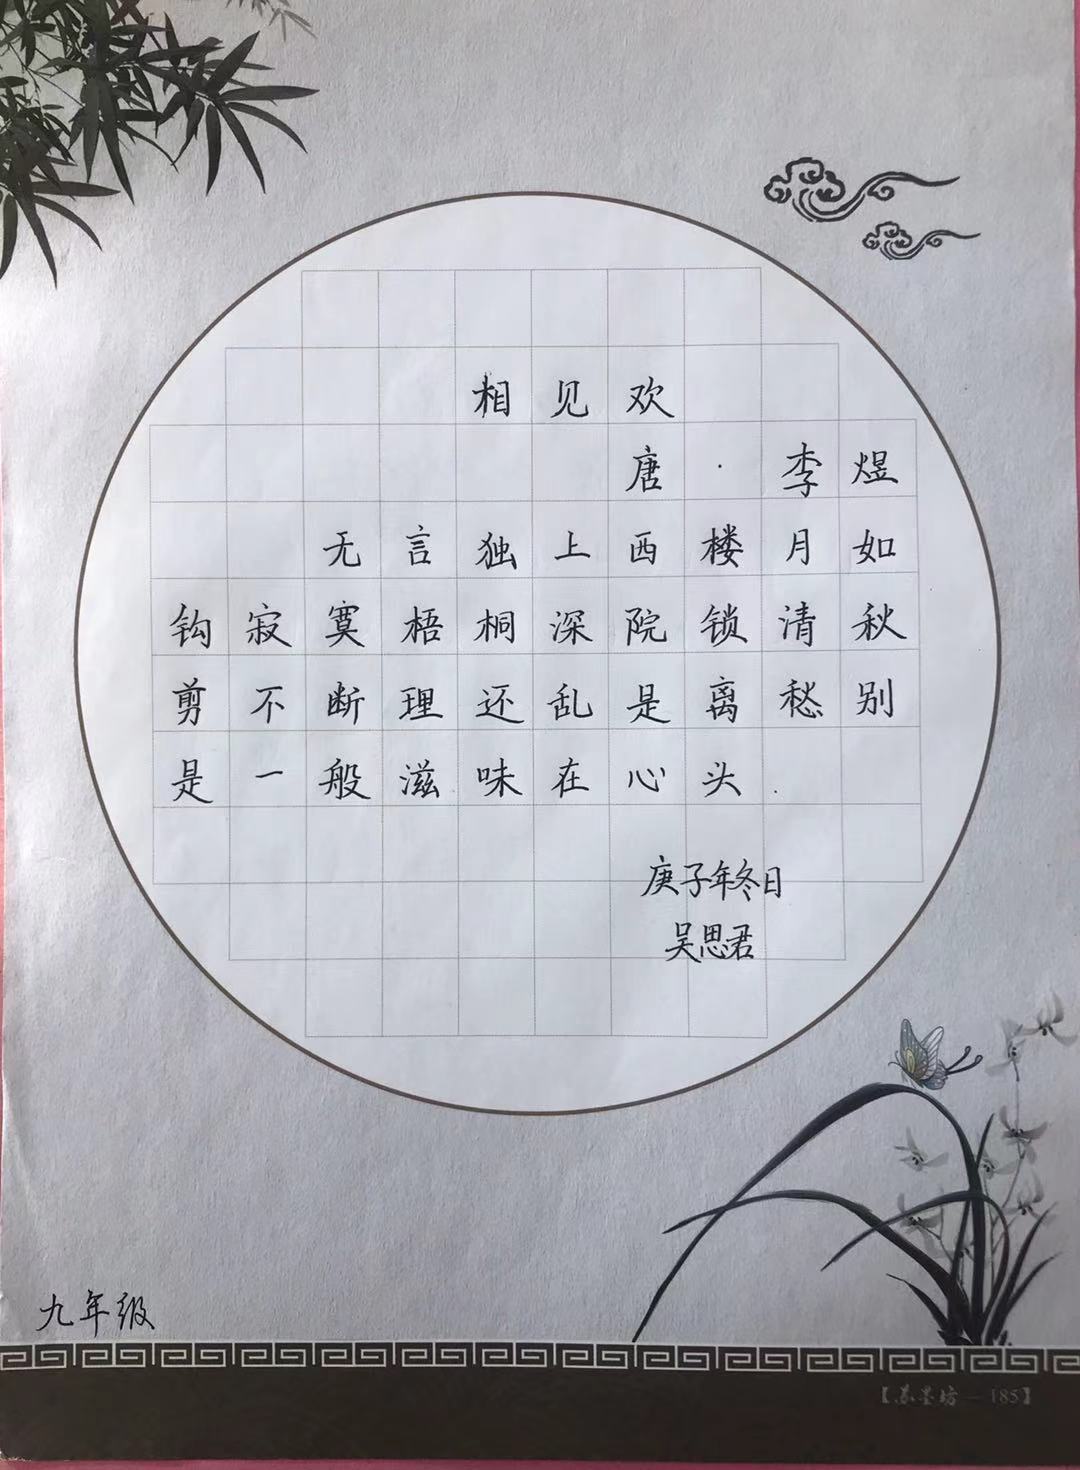 相见欢
唐·李煜
无言独上西楼月如
钩寂寞梧桐深院锁清秋
剪不断理还乱是离愁别
是一般滋味在心头.
庚子年冬日
吴思君
九年级
【苏墨坊—185】